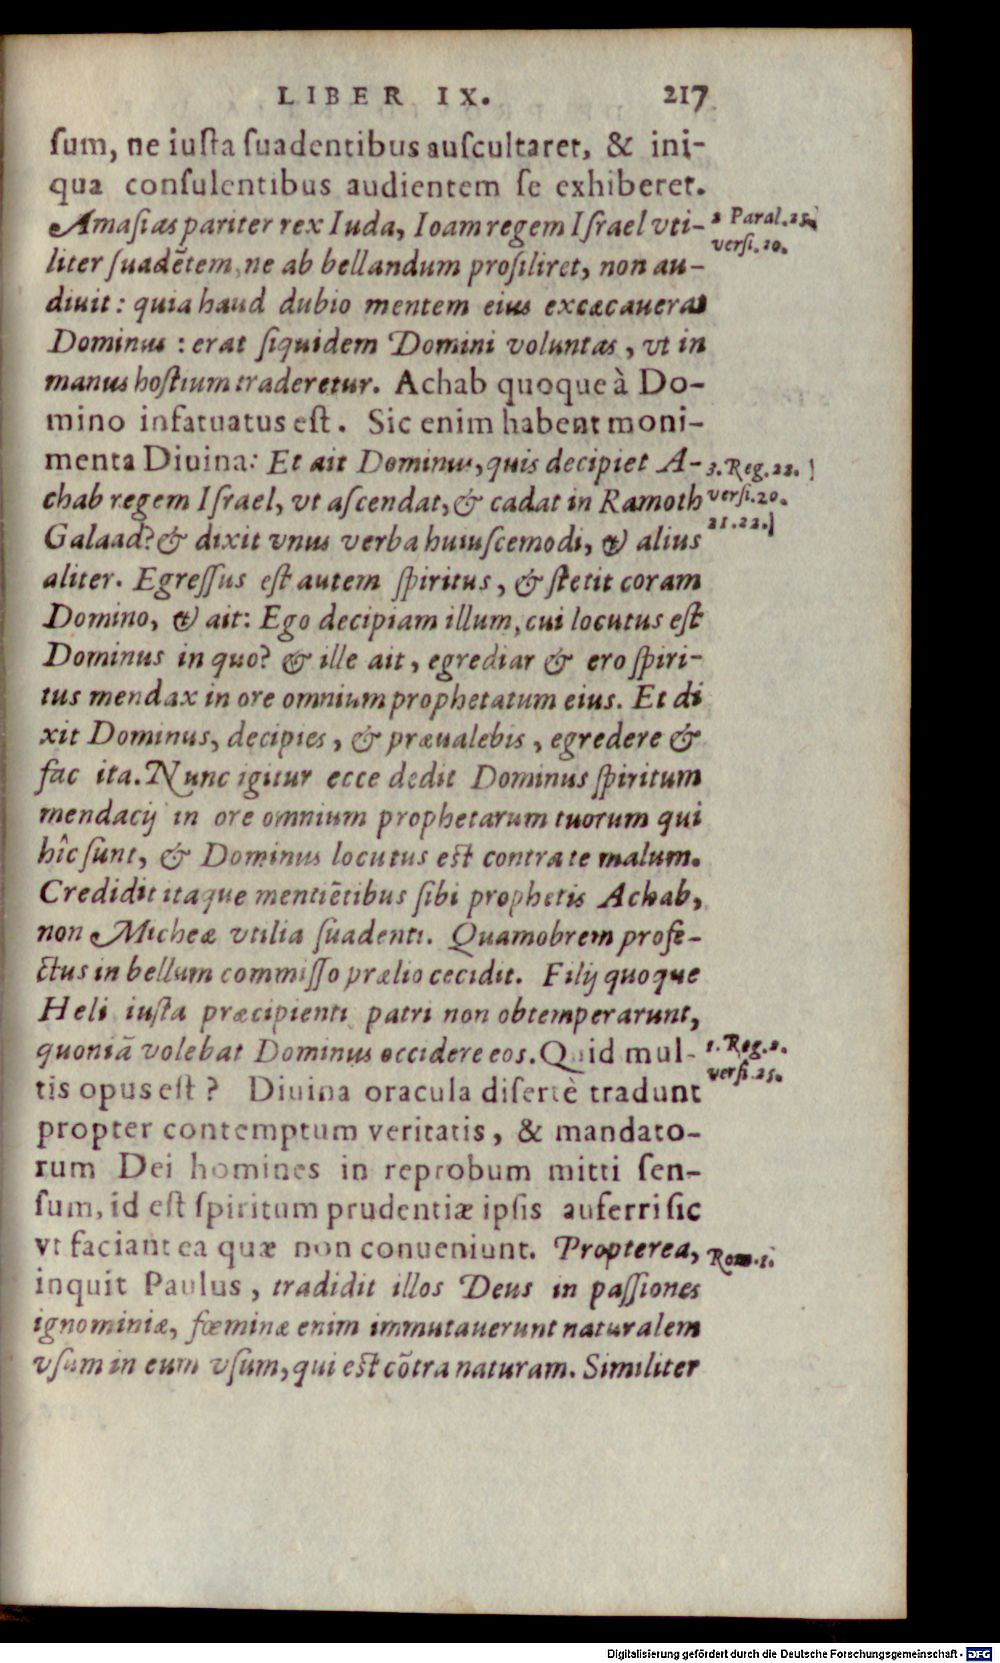 LIBER IX. 217
ſum, ne iuſta ſuadentibus auſcultaret, & ini-
qua conſulentibus audientem ſe exhiberet.
Amaſias pariter rex Iuda, Ioam regem Iſrael vti-
liter ſuadẽtem, ne ab bellandum proſiliret, non au-
diuit: quia haud dubio mentem eius excæcauerat
Dominus: erat ſiquidem Domini voluntas, vt in
manus hoſtium traderetur. Achab quoque à Do-
mino infatuatus eſt. Sic enim habent moni-
menta Diuina: Et ait Dominus, quis decipiet A-
chab regem Iſrael, vt aſcendat, & cadat in Ramoth
Galaad? & dixit vnus verba huiuſcemodi, & alius
aliter. Egreſſus eſt autem ſpiritus, & ſtetit coram
Domino, & ait: Ego decipiam illum, cui locutus eſt
Dominus in quo? & ille ait, egrediar & ero ſpiri-
tus mendax in ore omnium prophetatum eius. Et di
xit Dominus, decipies, & præualebis, egredere &
fac ita. Nunc igitur ecce dedit Dominus ſpiritum
mendacij in ore omnium prophetarum tuorum qui
hîc ſunt, & Dominus locutus eſt contra te malum.
Credidit itaque mentiẽtibus ſibi prophetis Achab,
non Micheæ vtilia ſuadenti. Quamobrem profe-
ctus in bellum commiſſo prælio cecidit. Filij quoque
Heli iuſta præcipienti patri non obtemperarunt,
quoniã volebat Dominus occidere eos. Quid mul-
tis opus eſt? Diuina oracula diſertè tradunt
propter contemptum veritatis, & mandato-
rum Dei homines in reprobum mitti ſen-
ſum, id eſt ſpiritum prudentiæ ipſis auferri ſic
vt faciant ea quæ non conueniunt. Propterea,
inquit Paulus, tradidit illos Deus in paſſiones
ignominiæ, fœminæ enim immutauerunt naturalem
vſum in eum vſum, qui eſt cõtra naturam. Similiter
2 Paral. 25.
verſi. 20.
3. Reg. 22.
verſi. 20.
21. 22.
1. Reg. 2.
verſi. 25.
Rom. 1.
Digitalisierung gefördert durch die Deutsche Forschungsgemeinschaft - DFG